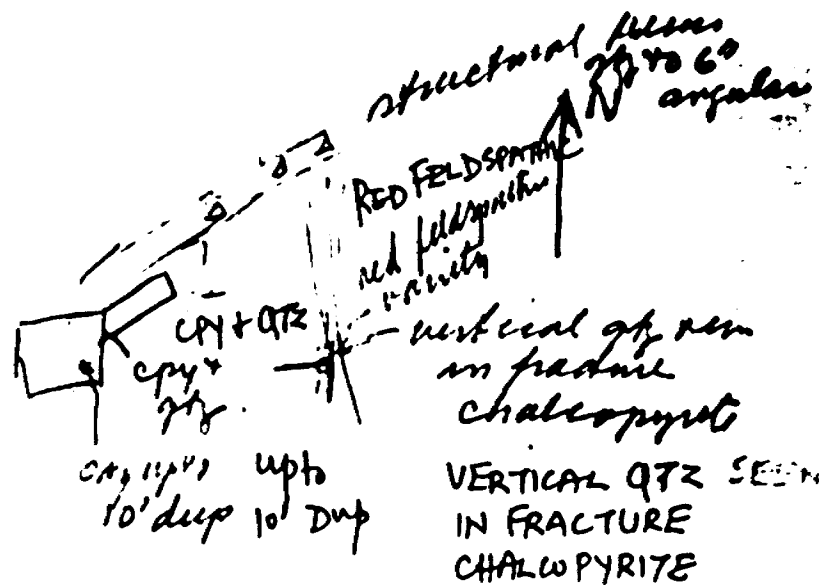 structural
qtz to 6"
angular
N
RED FELDSPATHIC
red feldspathic
variety
CPY + QTZ
cpy +
qtz
vertical qtz
in fracture
chalcopyrite
up to
10' deep 10' Dup
VERTICAL QTZ
IN FRACTURE
CHALCOPYRITE